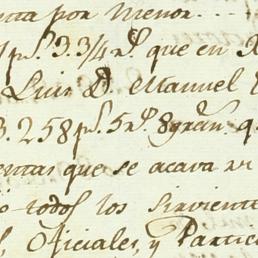 por Menor...
p.s 3.3/4 r.s que en
Luis D. Manuel
3.258 p.s 5 r.s 8 gran.s
que se acava
todos los Sirviente
Oficiales, y Partic